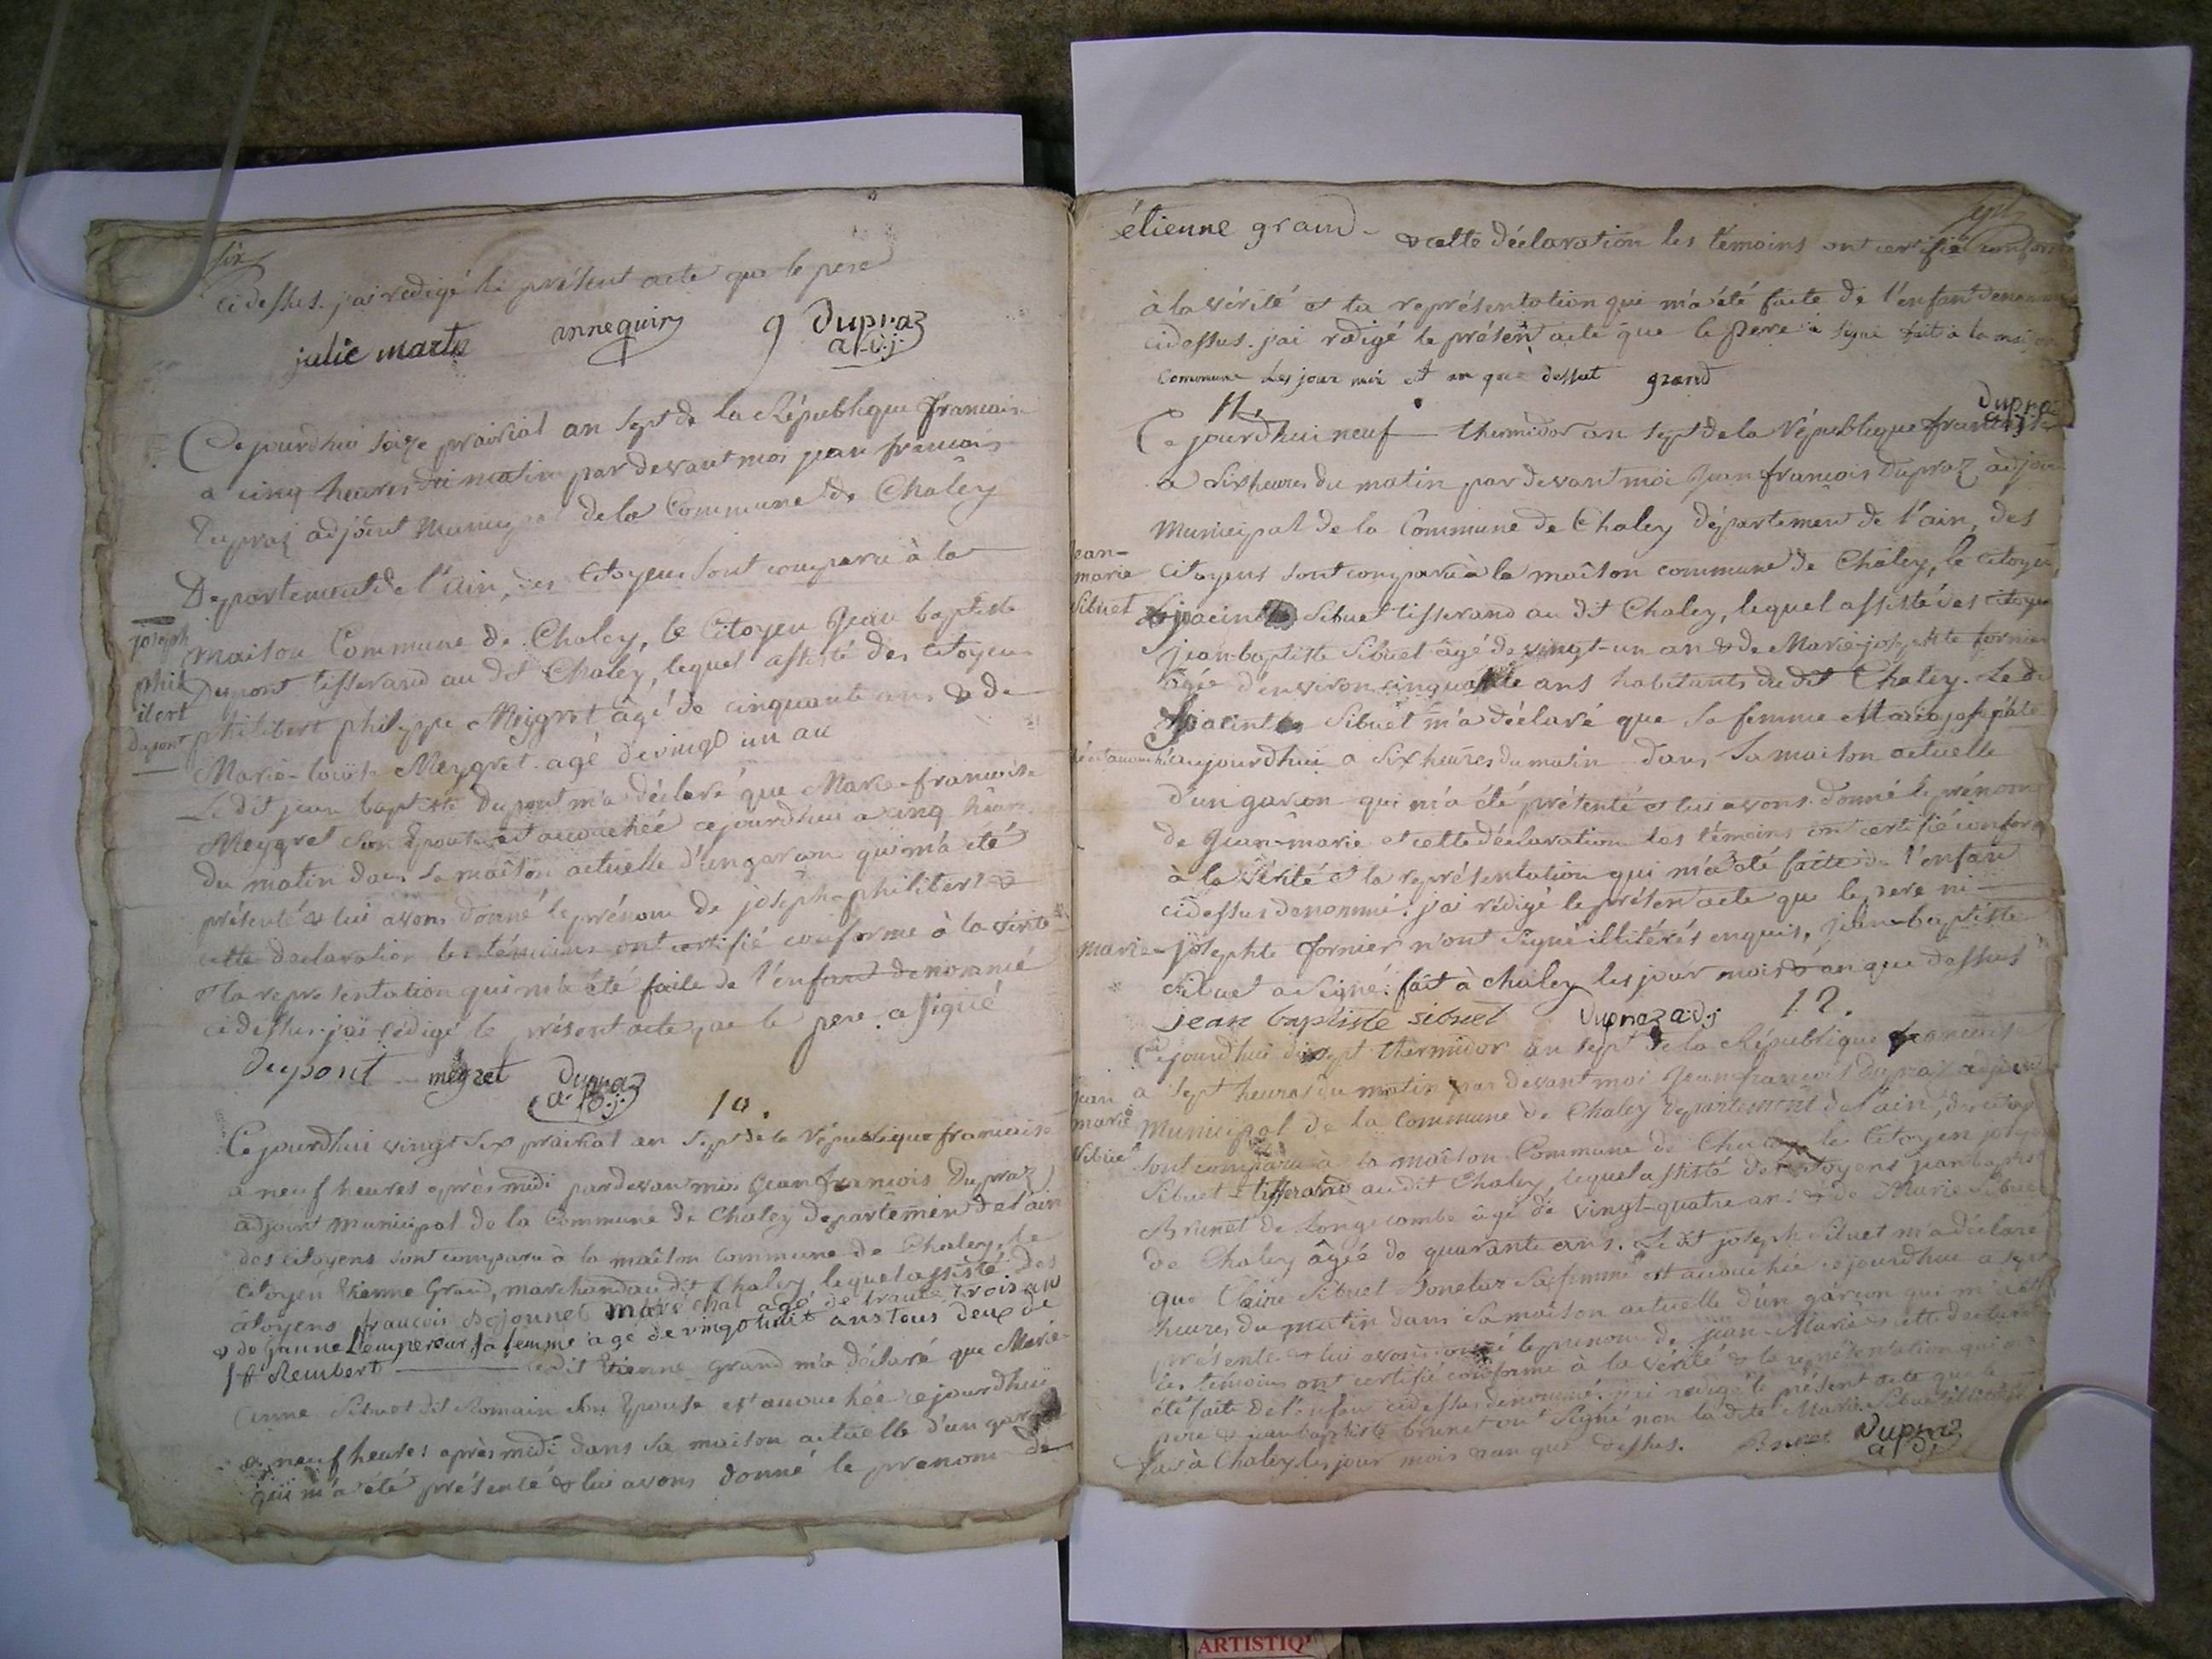 six
cidessus. j'ai redigé le présent acte que le pere
julie martin annequin 9 Dupraz
a.d.j.
Cejourdhui seize prairial an sept de la République francaise
a cinq heures du matin par devant moi jean francois
Dupraz adjoint Municipal de la Commune de Chaley
Departement de l'ain, des Citoyens sont comparu à la
maison Commune de Chaley, le Citoyen Jean baptiste
joseph
phil
ilert
Dupont
Dupont tisserand au dit Chaley, lequel assisté des citoyens
philibert philippe Meygret âgé de cinquante ans & de
Marie-louise Meygret agé de vingt un an
Le dit jean baptiste Dupont m'a déclaré que Marie-francoise
Meygret son Epouse est accouchée cejourdhui a cinq heures
du matin dans sa maison actuelle d'un garcon qui m'a été
présenté & lui avons donné le prénom de joseph-philibert &
cette declaration les témoins ont certifié conforme à la vérité
& la representation qui m'a été faite de l'enfant denommé
cidessus. j'ai rédigé le présent acte que le pere a signé
Dupont megret Dupraz
a.d.j.
10.
Cejourdhui vingt six prairial an sept de la République francaise
a neuf heures après midi pardevant moi Jean francois Dupraz
adjoint municipal de la Commune de Chaley departement de l'ain
des citoyens sont comparu à la maison commune de Chaley, le
citoyen Etienne Grand, marchand au dit Chaley lequel assisté des
citoyens francois maréchal agé de trante trois an
& de Jeanne Lempereur sa femme agé de vingt huit ans tous deux de
St Rembert le dit Etienne Grand m'a déclaré que Marie
anne Sibuet dit Romain son Epouse est accouchée cejourdhui
a neuf heures après midi dans sa maison actuelle d'un garcon
qui m'a été présenté & lui avons donné le prenom de
sept
étienne grand - & cette déclaration les témoins ont certifié conforme
à la vérité et la représentation qui m'a été faite de l'enfant denommé
cidessus. j'ai rédigé le présent acte que le pere a signé fait à la maison
Commune les jour moi et an que dessut grand
11.
Dupraz
adj
Cejourdhui neuf thermidor an sept de la République francaise
a six heures du matin par devant moi Jean francois Dupraz adjoint
Municipal de la Commune de Chaley département de l'ain, des
jean-
marie
Sibuet
Citoyens sont comparu à la maison commune de Chaley, le citoyen
hyacinthe Sibuet tisserand au dit Chaley, lequel assisté des citoyens
jean-baptiste Sibuet âgé de vingt-un an & de Marie-josephte fornier
âgée d'environ cinquante ans habitants du dit Chaley. Le dit
hyacinthe Sibuet m'a déclaré que sa femme Marie josephte
est accouchée aujourdhui a six heures du matin dans sa maison actuelle
d'un garcon qui m'a été présenté et lui avons donné le prénom
de Jean-marie et cette déclaration les témoins ont certifié conforme
à la vérité et la représentation qui m'a été faite de l'enfant
cidessus denommé. j'ai rédigé le présent acte que le pere ni
marie-josephte fornier n'ont signé illitérés enquis, jean-baptiste
Sibuet a signé. fait à chaley les jour mois & an que dessus
jean baptiste sibuet Dupraz adj 12.
Cejourdhui dixsept thermidor an sept de la République francaise
jean
marie
Sibuet
a sept heures du matin par devant moi Jean francois Dupraz adjoint
municipal de la commune de Chaley departement de l'ain, des citoyens
sont comparu à la maison Commune de Chaley, le Citoyen joseph
Sibuet tisserand au dit Chaley, lequel assisté des citoyens jean baptiste
Brunet de Longecombe âgé de vingt-quatre ans & de Marie Sibuet
de Chaley âgée de quarante ans. Le dit joseph Sibuet m'a déclaré
que Claire Sibuet sa femme est accouchée cejourdhui a sept
heures du matin dans sa maison actuelle d'un garcon qui m'a été
présenté & lui avons donné le prenom de jean-Marie & cette declaration
les témoins ont certifié conforme à la vérité & la représentation qui m'a
été faite de l'enfant cidessus denommé. j'ai redigé le présent acte que le
pere & jean baptiste brunet ont signé non la dite Marie Sibuet
fait à Chaley les jour mois & an que dessus. Brunet Dupraz
adj
ARTISTIQ